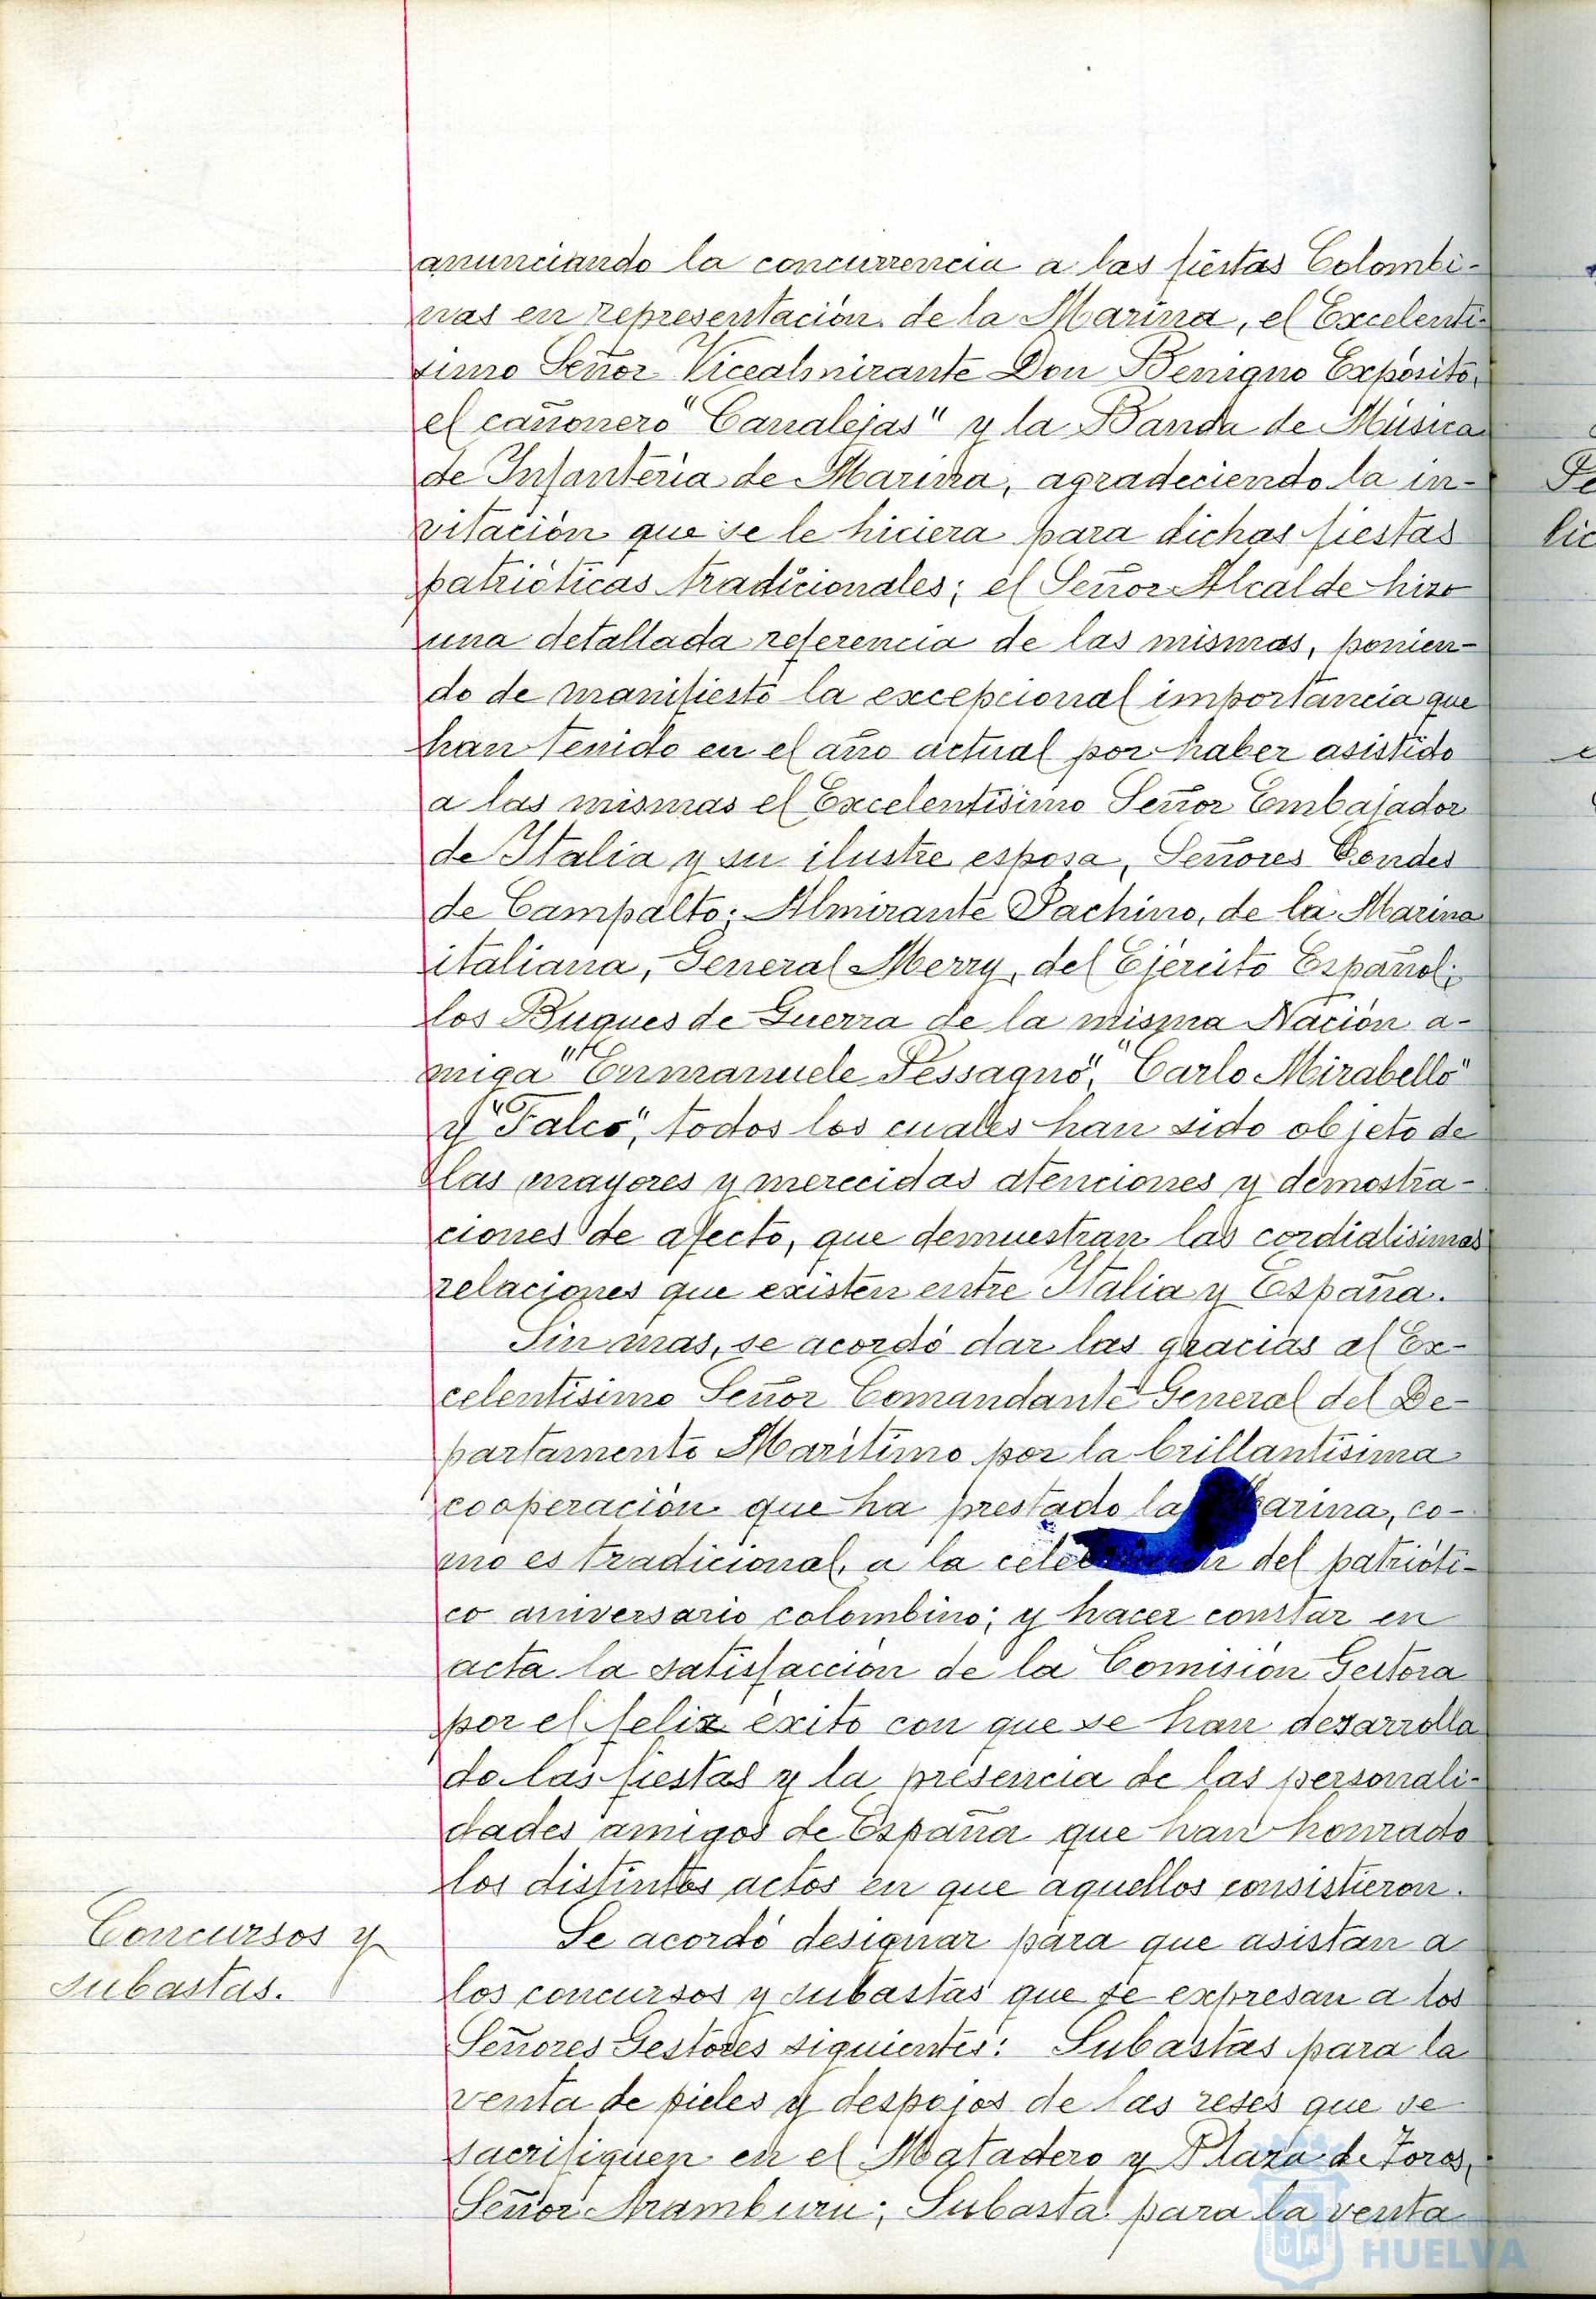 anunciando la concurrencia a las fiestas Colombi-
nas en representación de la Marina, el Excelentí-
simo Señor Vicealmirante Don Benigno Expósito,
el cañonero "Canalejas" y la Banda de Música
de Infantería de Marina, agradeciendo la in-
vitación que se le hiciera para dichas fiestas
patrióticas tradicionales; el Señor Alcalde hizo
una detallada referencia de las mismas, ponien-
do de manifiesto la excepcional importancia que
han tenido en el año actual por haber asistido
a las mismas el Excelentísimo Señor Embajador
de Italia y su ilustre esposa, Señores Condes
de Campalto; Almirante Pachino, de la Marina
italiana, General Merry, del Ejército Español;
los Buques de Guerra de la misma Nación a-
miga "Enmanuele Pessagno", "Carlo Mirabello"
y "Falco", todos los cuales han sido objeto de
las mayores y merecidas atenciones y demostra-
ciones de afecto, que demuestran las cordialísimas
relaciones que existen entre Italia y España.
Sin mas, se acordó dar las gracias al Ex-
celentísimo Señor Comandante General del De-
partamento Marítimo por la brillantísima
cooperación que ha prestado la Marina, co-
mo es tradicional, a la celebración del patrióti-
co aniversario colombino; y hacer constar en
acta la satisfacción de la Comisión Gestora
por el feliz éxito con que se han desarrolla
do las fiestas y la presencia de las personali-
dades amigos de España que han honrado
los distintos actos en que aquellos consistieron.
Concursos y
subastas.
Se acordó designar para que asistan a
los concursos y subastas que se expresan a los
Señores Gestores siguientes: Subastas para la
venta de pieles y despojos de las reses que se
sacrifiquen en el Matadero y Plaza de Toros,
Señor Aramburu; Subasta para la venta
HUELVA